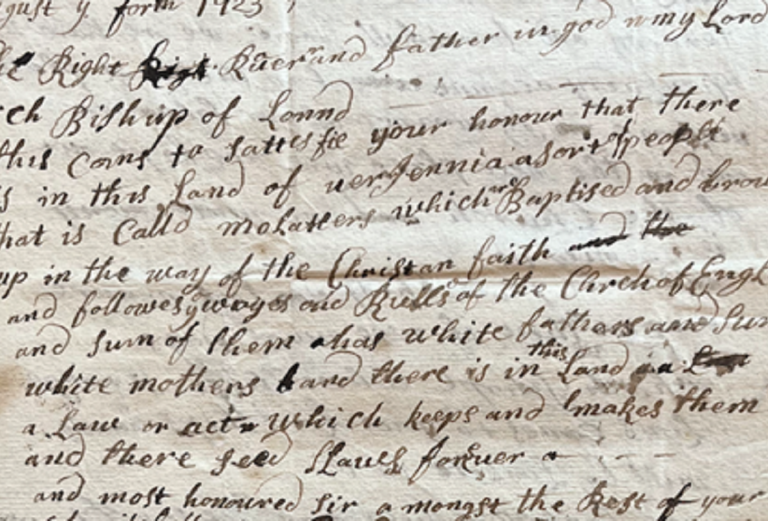 gust y forth 1723
Right Ruerand father in god n my Lord
ch Bishup of Lonnd
this coms to sattesfie your honour that there
is in this Land of uerJennia a sort of people
hat is Calld molatters which are Baptised and brou
up in the way of the Christan faith and the
and followes y wayes and Rulls of the Chrch of Engl
and sum of them has white fathers and sum
white mothers and there is in this Land a
a Law or act which keeps and makes them
and there seed Slaues foreuer
and most honoured sir a mongst the Rest of your